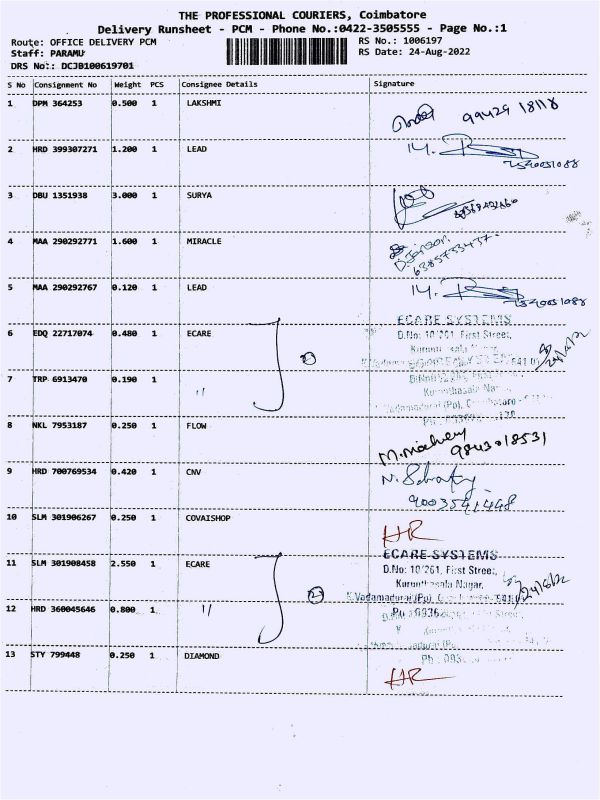 THE PROFESSIONAL COURIERS, Coimbatore
Delivery Runsheet - PCM - Phone No.:0422-3505555 - Page No.:1
Route: OFFICE DELIVERY PCM RS No.: 1006197
Staff: PARAMU RS Date: 24-Aug-2022
DRS No.: DCJB100619701
S No Consignment No Weight PCS Consignee Details Signature
1 DPM 364253 0.500 1 LAKSHMI 99429 18118
2 HRD 399307271 1.200 1 LEAD
3 DBU 1351938 3.000 1 SURYA
4 MAA 290292771 1.600 1 MIRACLE
6385733437
5 MAA 290292767 0.120 1 LEAD
ECARE SYSTEMS
6 EDQ 22717074 0.480 1 ECARE D.No: 10/261, First Street,
7 TRP 6913470 0.190 1 "
8 NKL 7953187 0.250 1 FLOW
9843018531
9 HRD 700769534 0.420 1 CNV
9003541448
10 SLM 301906267 0.250 1 COVAISHOP HR
ECARE SYSTEMS
11 SLM 301908458 2.550 1 ECARE D.No: 10/261, First Street,
Kurunthasala Nagar,
12 HRD 360045646 0.800 1 "
13 STY 799448 0.250 1 DIAMOND
HR